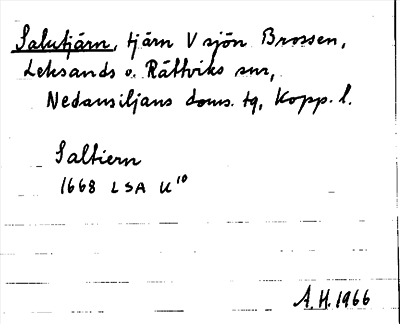 Salutjärn, tjärn V sjön Brossen,
Leksands o. Rättviks snr,
Nedansiljans doms. tg, Kopp. l.
Saltiern
1668 LSA U¹⁰
A.H. 1966